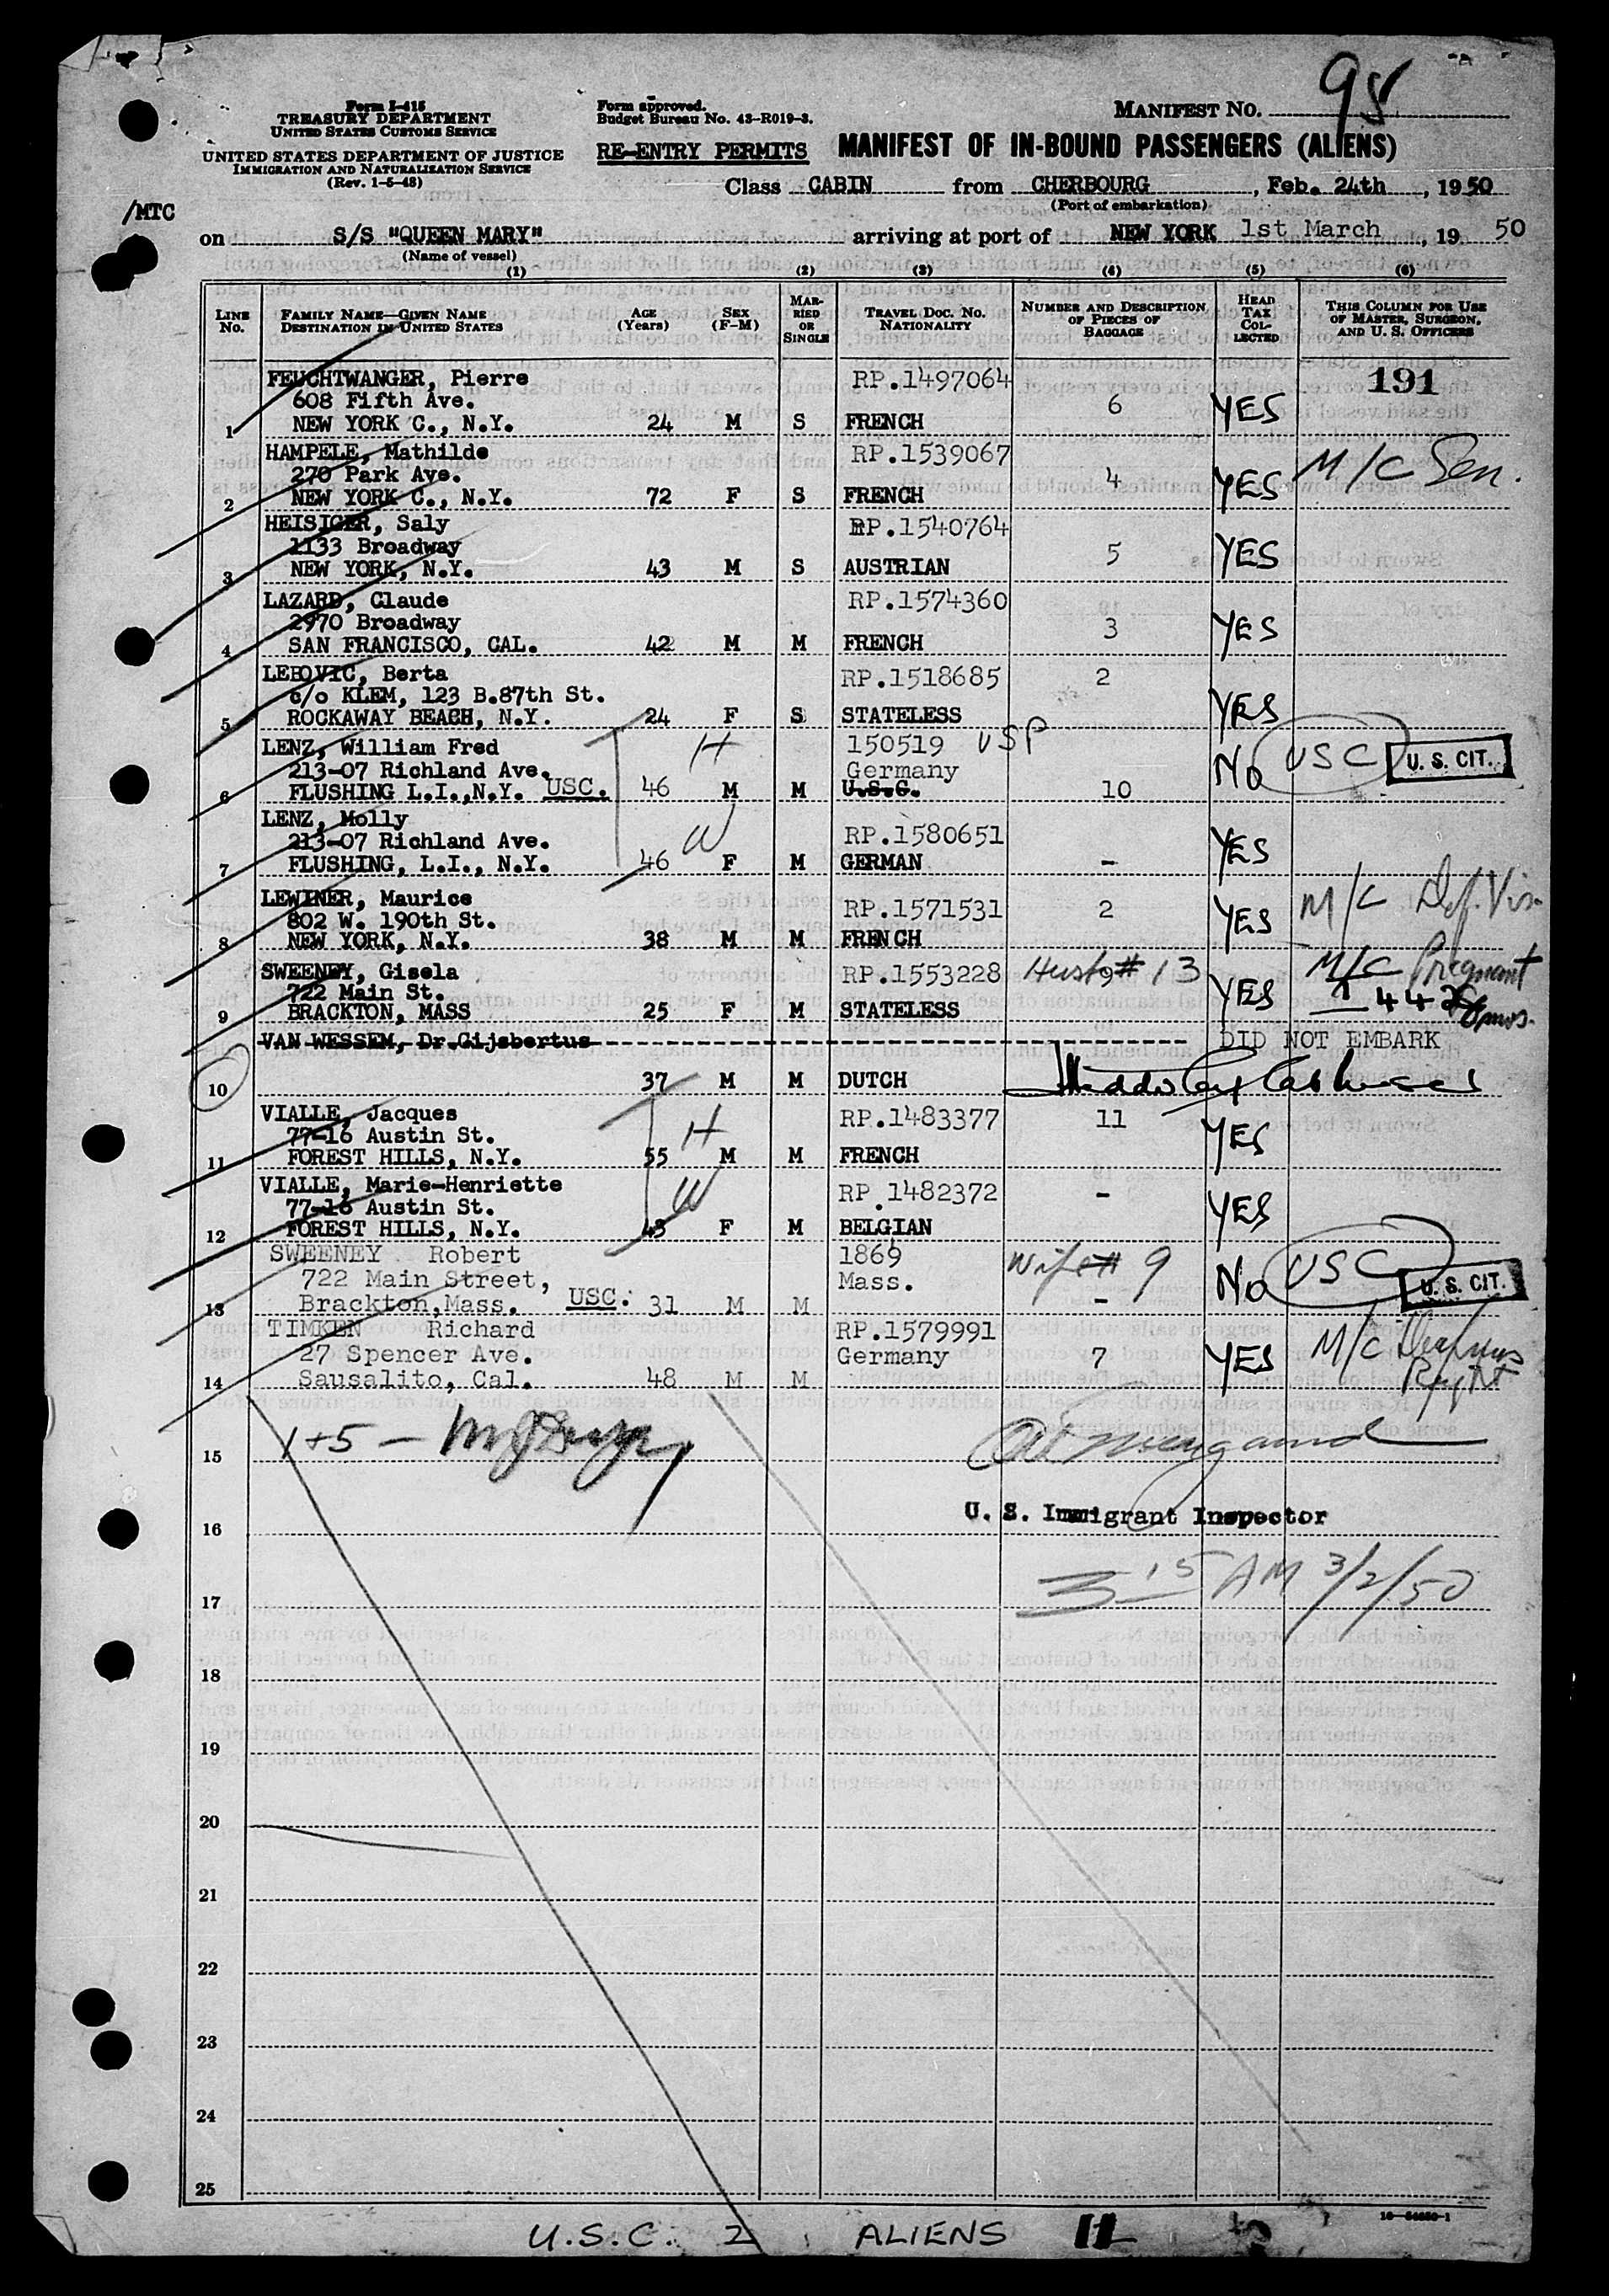 Form I-415
TREASURY DEPARTMENT
UNITED STATES CUSTOMS SERVICE
UNITED STATES DEPARTMENT OF JUSTICE
IMMIGRATION AND NATURALIZATION SERVICE
(Rev. 1-5-48)
Form approved.
Budget Bureau No. 43-R019-3.
MANIFEST No. 98
RE-ENTRY PERMITS MANIFEST OF IN-BOUND PASSENGERS (ALIENS)
Class CABIN from CHERBOURG, Feb. 24th, 1950
(Port of embarkation)
/MTC
on S/S "QUEEN MARY" arriving at port of NEW YORK 1st March, 19 50
(Name of vessel)
(1) (2) (3) (4) (5) (6)
LINE No. FAMILY NAME—GIVEN NAME DESTINATION IN UNITED STATES AGE (Years) SEX (F-M) MARRIED OR SINGLE TRAVEL DOC. NO. NATIONALITY NUMBER AND DESCRIPTION OF PIECES OF BAGGAGE HEAD TAX COLLECTED THIS COLUMN FOR USE OF MASTER, SURGEON, AND U. S. OFFICERS
FEUCHTWANGER, Pierre RP.1497064 191
608 Fifth Ave. 6 YES
1 NEW YORK C., N.Y. 24 M S FRENCH
HAMPELE, Mathilde RP.1539067
270 Park Ave. 4 YES M/C Sen.
2 NEW YORK C., N.Y. 72 F S FRENCH
HEISIGER, Saly RP.1540764
1133 Broadway 5 YES
3 NEW YORK, N.Y. 43 M S AUSTRIAN
LAZARD, Claude RP.1574360
2970 Broadway 3 YES
4 SAN FRANCISCO, CAL. 42 M M FRENCH
LEBOVIC, Berta RP.1518685 2
c/o KLEM, 123 B.87th St. YES
5 ROCKAWAY BEACH, N.Y. 24 F S STATELESS
LENZ, William Fred H 150519 USP
213-07 Richland Ave. Germany No USC U. S. CIT.
6 FLUSHING L.I.,N.Y. USC. 46 M M U.S.C. 10
LENZ, Molly W
213-07 Richland Ave. RP.1580651 YES
7 FLUSHING, L.I., N.Y. 46 F M GERMAN -
LEWINER, Maurice RP.1571531 2 YES M/C Def. Vis.
802 W. 190th St.
8 NEW YORK, N.Y. 38 M M FRENCH
SWEENEY, Gisela RP.1553228 Husb # 13 9 M/C Pregnant
722 Main St. YES
9 BRACKTON, MASS 25 F M STATELESS
VAN WESSEM, Dr Gijsbertus DID NOT EMBARK
10 37 M M DUTCH
VIALLE, Jacques H RP.1483377 11
77-16 Austin St. YES
11 FOREST HILLS, N.Y. 55 M M FRENCH
VIALLE, Marie-Henriette W RP.1482372 -
77-16 Austin St. YES
12 FOREST HILLS, N.Y. 43 F M BELGIAN
SWEENEY Robert 1869 Wife # 9
722 Main Street, Mass. No USC U. S. CIT.
13 Brackton,Mass. USC. 31 M M -
TIMKEN Richard RP.1579991
27 Spencer Ave. Germany 7 YES M/C
14 Sausalito, Cal. 48 M M
15 1+5 —
U. S. Immigrant Inspector
16
3 15 AM 3/2/50
17
18
19
20
21
22
23
24
25
16-54650-1
U.S.C. 2 ALIENS 11